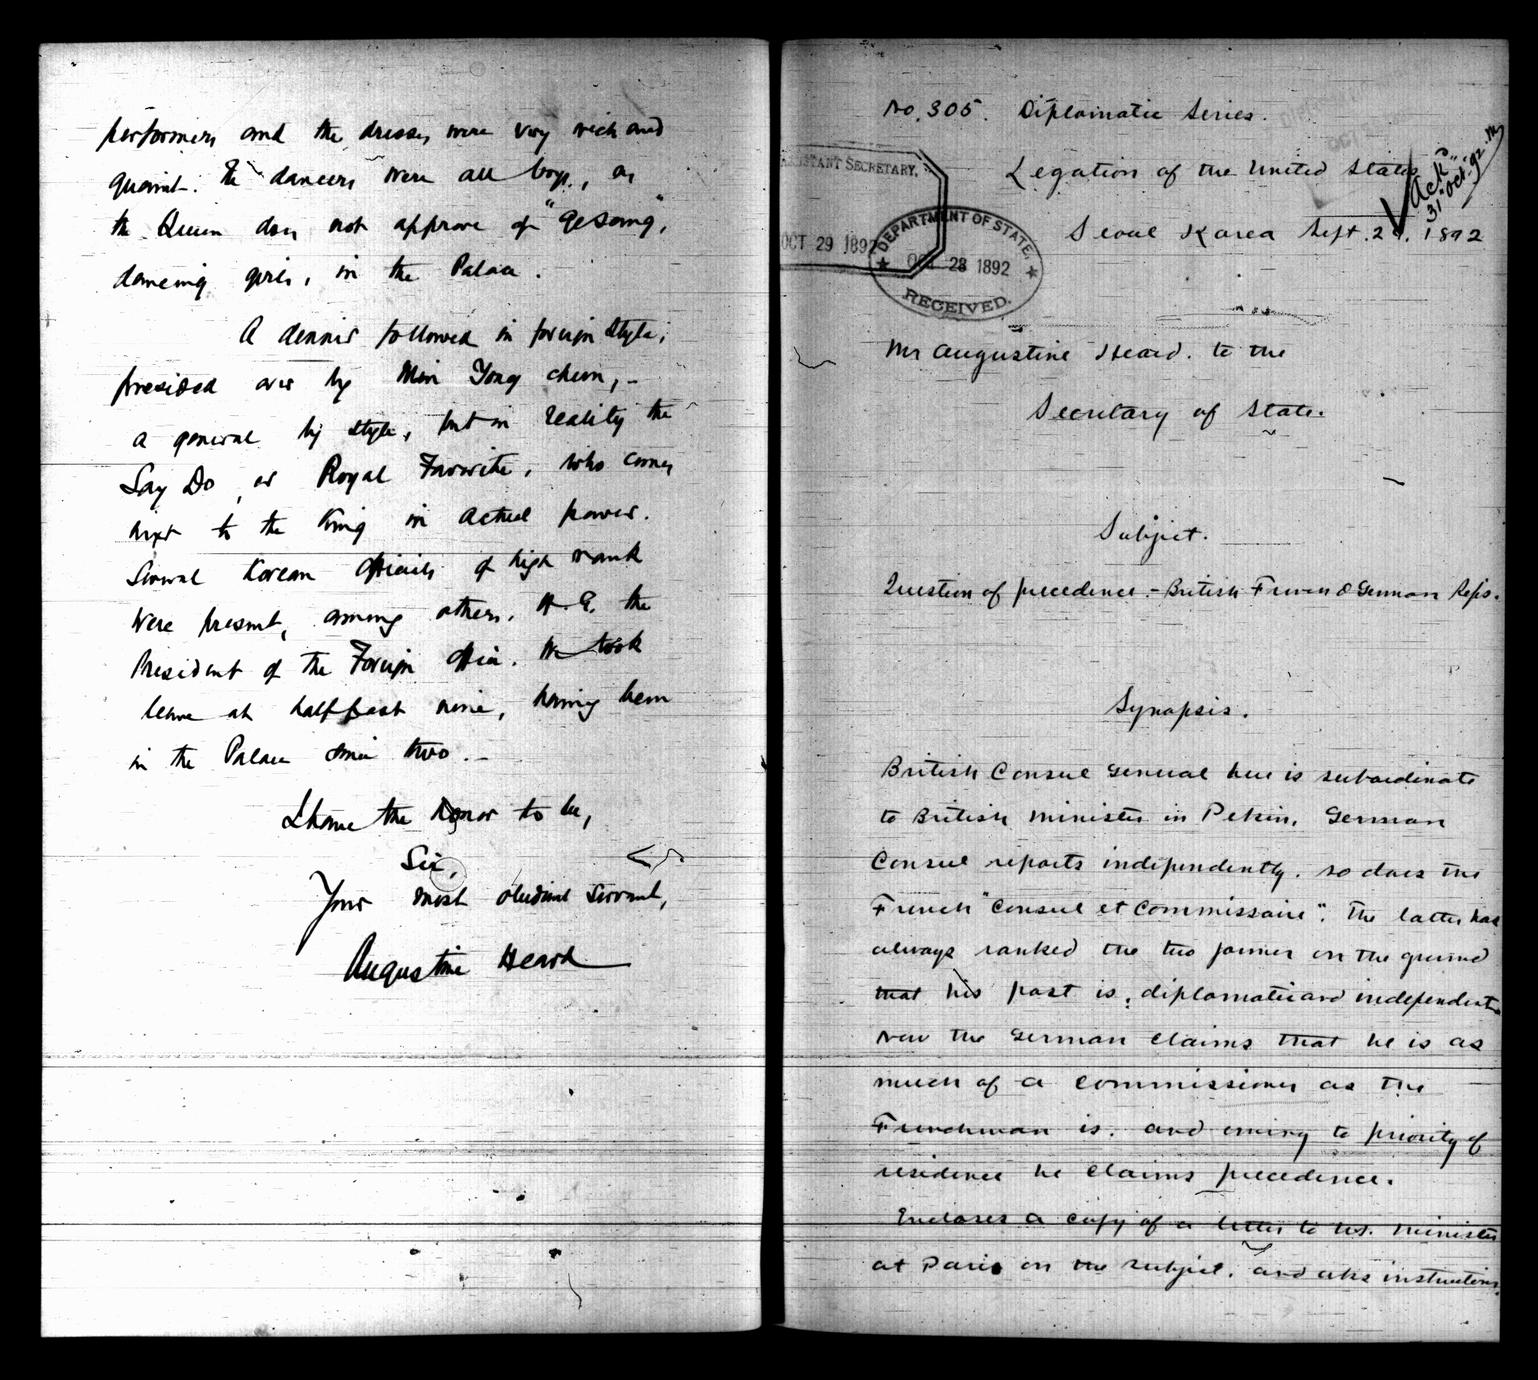 performers and the dresses were very rich and
quaint. The dancers were all boys, as
the Queen does not approve of "gesang",
dancing girls, in the Palace.
A dinner followed in foreign style,
presided over by Min Yong chun, -
a general by style, but in reality the
Say Do, or Royal Favorite, who comes
next to the King in actual power.
Several Korean Officials of high rank
were present, among others, H.E. the
President of the Foreign Office. We took
leave at half past nine, having been
in the Palace since two. -
I have the honor to be,
Sir,
Your most obedient servant,
Augustine Heard
No. 305. Diplomatic Series.
Legation of the United States
Ack'd
31 Oct. '92.
Seoul Korea Sept. 1892
ASSISTANT SECRETARY.
OCT 29 1892
DEPARTMENT OF STATE,
OCT 28 1892
RECEIVED.
Mr Augustine Heard. to the
Secretary of State.
Subject.
Question of precedence. - British French & German Reps.
Synopsis.
British Consul General here is subordinate
to British Minister in Pekin. German
Consul reports independently. so does the
French "Consul et Commissaire". The latter has
always ranked the two former on the ground
that his post is diplomatic and independent.
Now the German claims that he is as
much of a commissioner as the
Frenchman is. and owing to priority of
residence he claims precedence.
Encloses a copy of a letter to U.S. Minister
at Paris on the subject. and asks instructions.